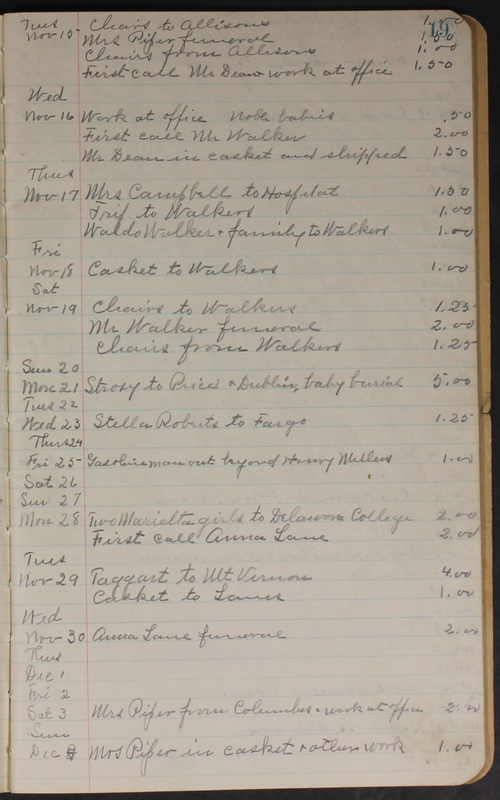 Tues Chairs to Allisons 1.00
Nov 15 Mrs Pifer funeral 1.50
Chairs from Allisons 1.00
First call Mr Dean + work at office 1.50
Wed
Nov 16 Work at office Noble babies .50
First call Mr Walker 2.00
Mr Dean in casket and shipped 1.50
Thus
Nov 17 Mrs Campbell to Hospital 1.50
Trip to Walkers 1.00
Waldo Walker + family to Walkers 1.00
Fri
Nov 18 Casket to Walkers 1.00
Sat
Nov 19 Chairs to Walkers 1.25
Mr Walker funeral 2.00
Chairs from Walkers 1.25
Sun 20
Mon 21 to Prices + Dublin, baby burial 5.00
Tues 22
Wed 23 Stella Roberts to Fargo 1.25
Thurs 24
Fri 25 Gasoline man out beyond Henry Millers 1.00
Sat 26
Sun 27
Mon 28 Two Marietta girls to Delaware College 2.00
First call Anna Lane 2.00
Tues
Nov 29 Taggart to Mt Vernon 4.00
Casket to Lanes 1.00
Wed
Nov 30 Anna Lane funeral 2.00
Thus
Dec 1
Fri 2
Sat 3 Mrs Pifer from Columbus + work at office 2.00
Sun
Dec Mrs Pifer in casket + other work 1.00